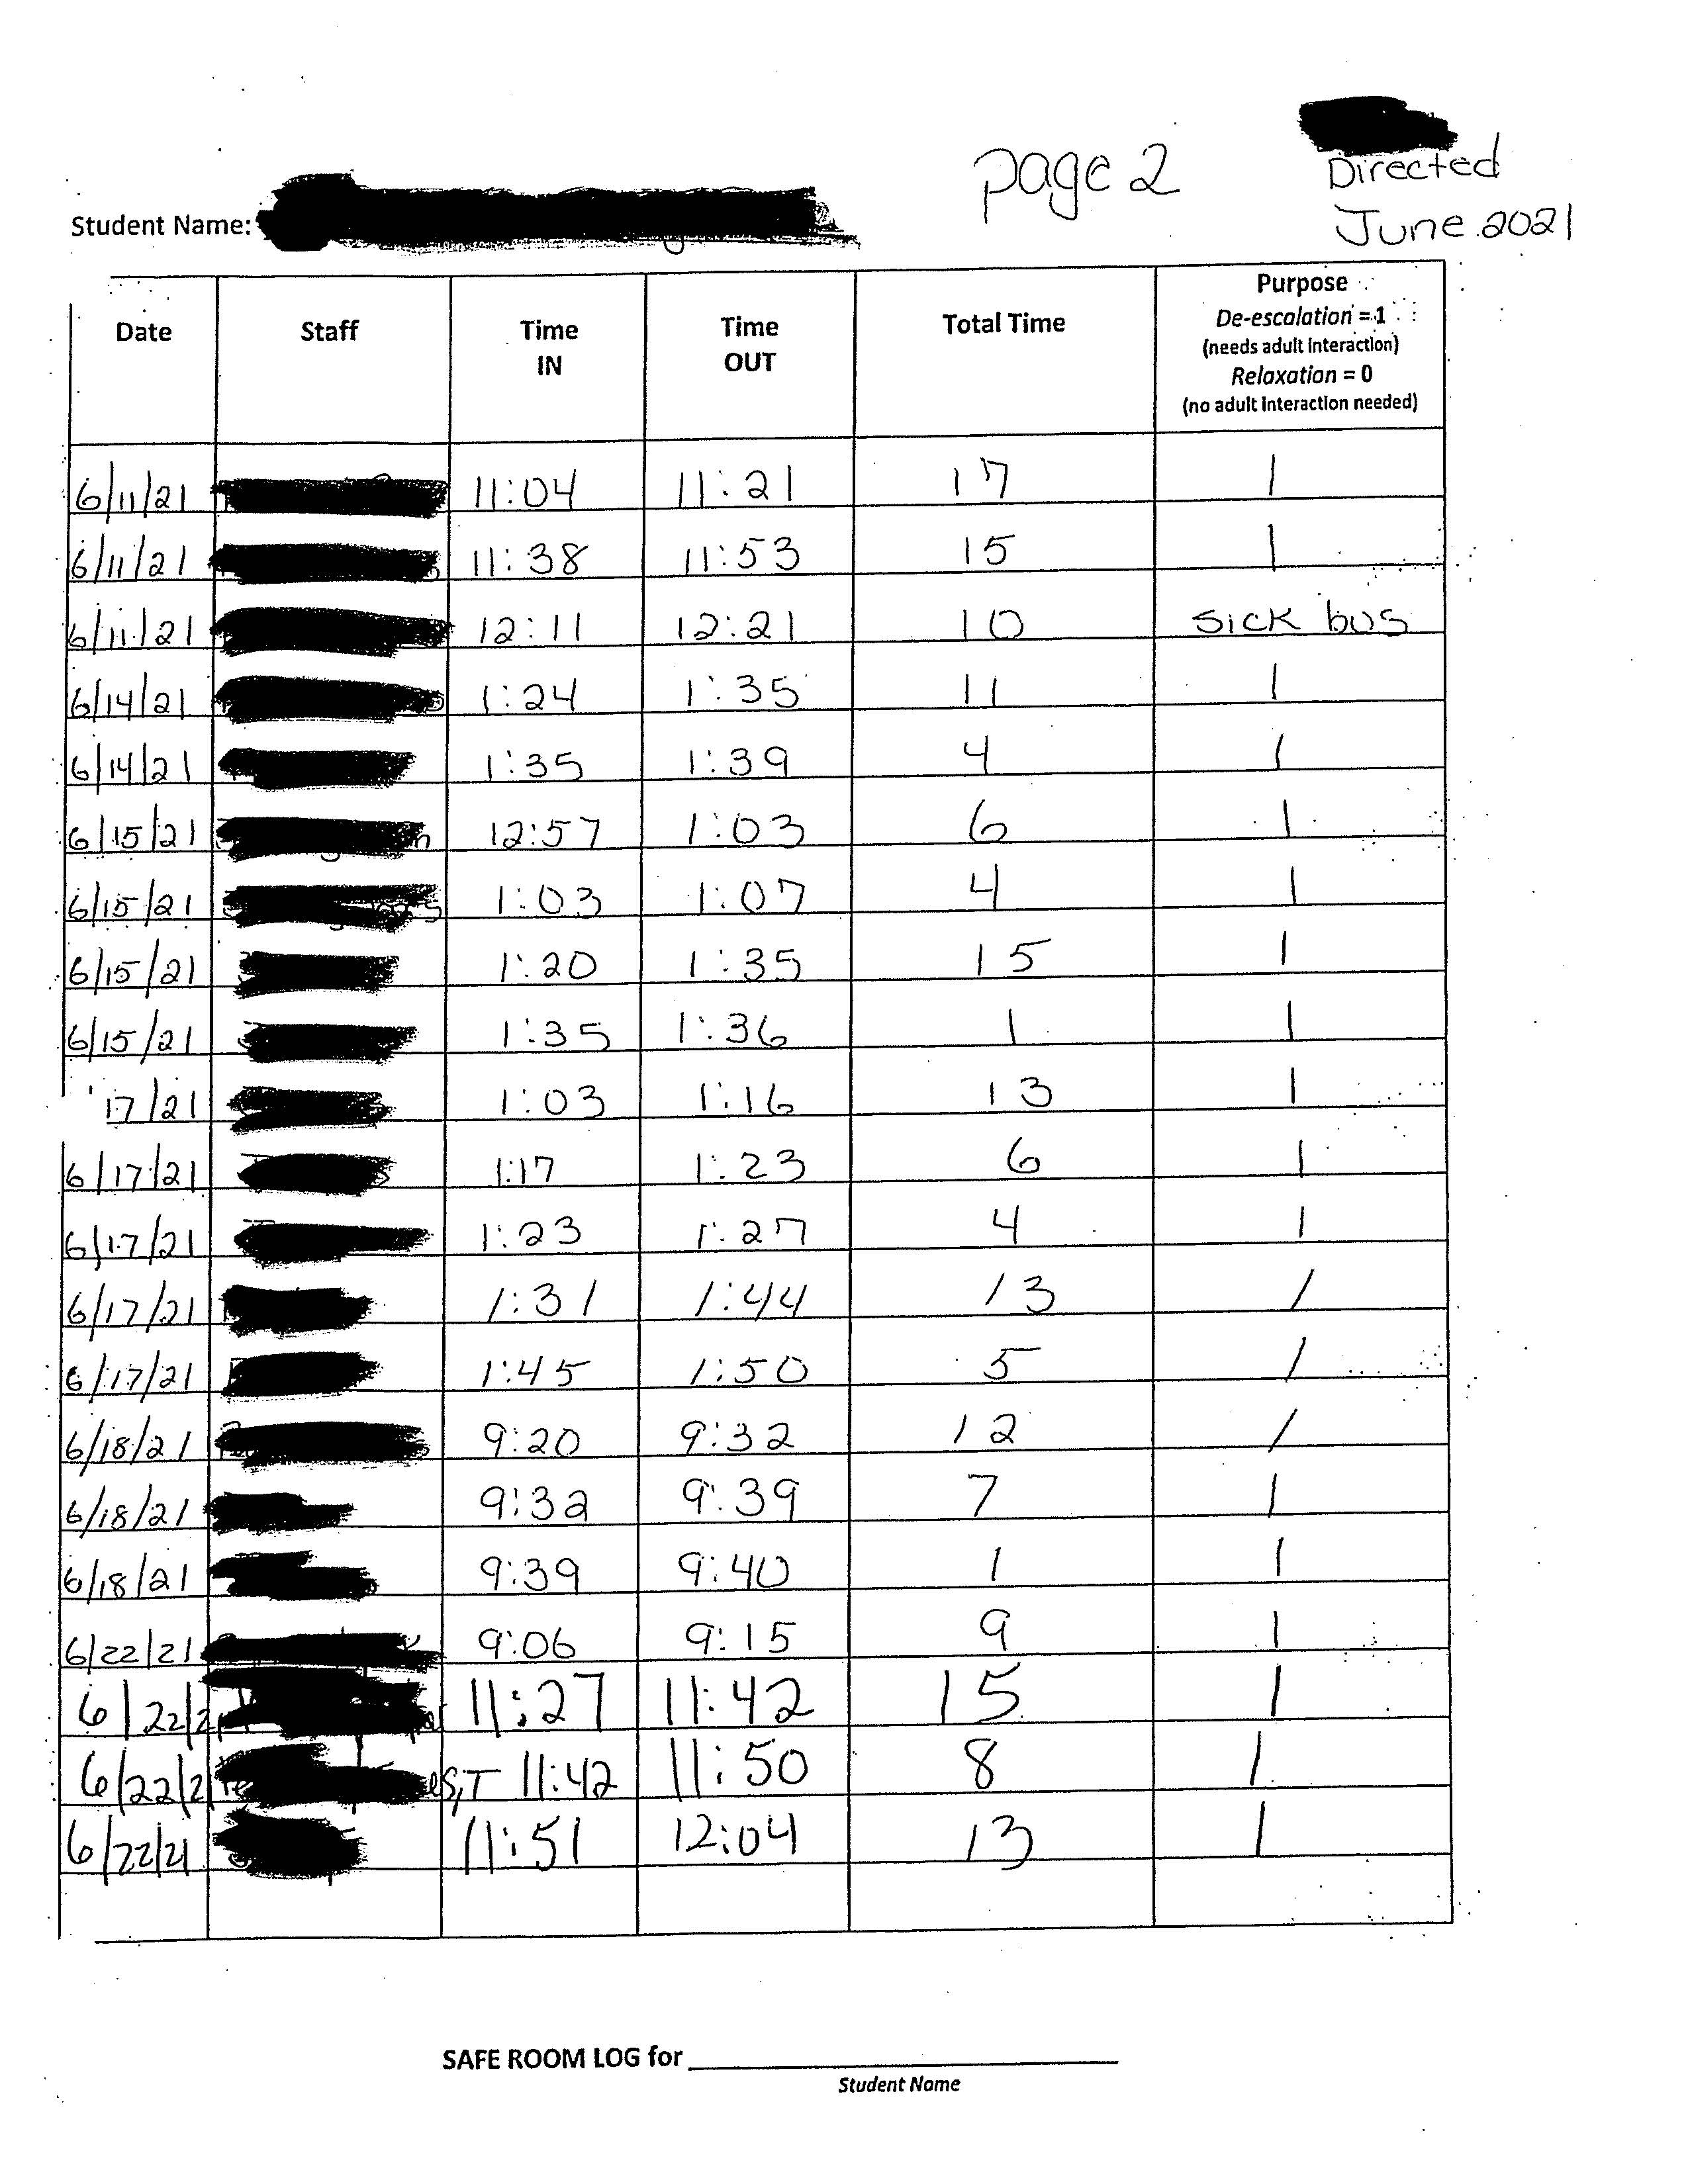 page 2
Directed
June 2021
Student Name:
Date Staff Time IN Time OUT Total Time Purpose
De-escalation = 1
(needs adult interaction)
Relaxation = 0
(no adult interaction needed)
6/11/21 11:04 11:21 17 1
6/11/21 11:38 11:53 15 1
6/11/21 12:11 12:21 10 sick bus
6/14/21 1:24 1:35 11 1
6/14/21 1:35 1:39 4 1
6/15/21 12:57 1:03 6 1
6/15/21 1:03 1:07 4 1
6/15/21 1:20 1:35 15 1
6/15/21 1:35 1:36 1 1
17/21 1:03 1:16 13 1
6/17/21 1:17 1:23 6 1
6/17/21 1:23 1:27 4 1
6/17/21 1:31 1:44 13 1
6/17/21 1:45 1:50 5 1
6/18/21 9:20 9:32 12 1
6/18/21 9:32 9:39 7 1
6/18/21 9:39 9:40 1 1
6/22/21 9:06 9:15 9 1
6/22/21 11:27 11:42 15 1
6/22/21 11:42 11:50 8 1
6/22/21 11:51 12:04 13 1
SAFE ROOM LOG for
Student Name